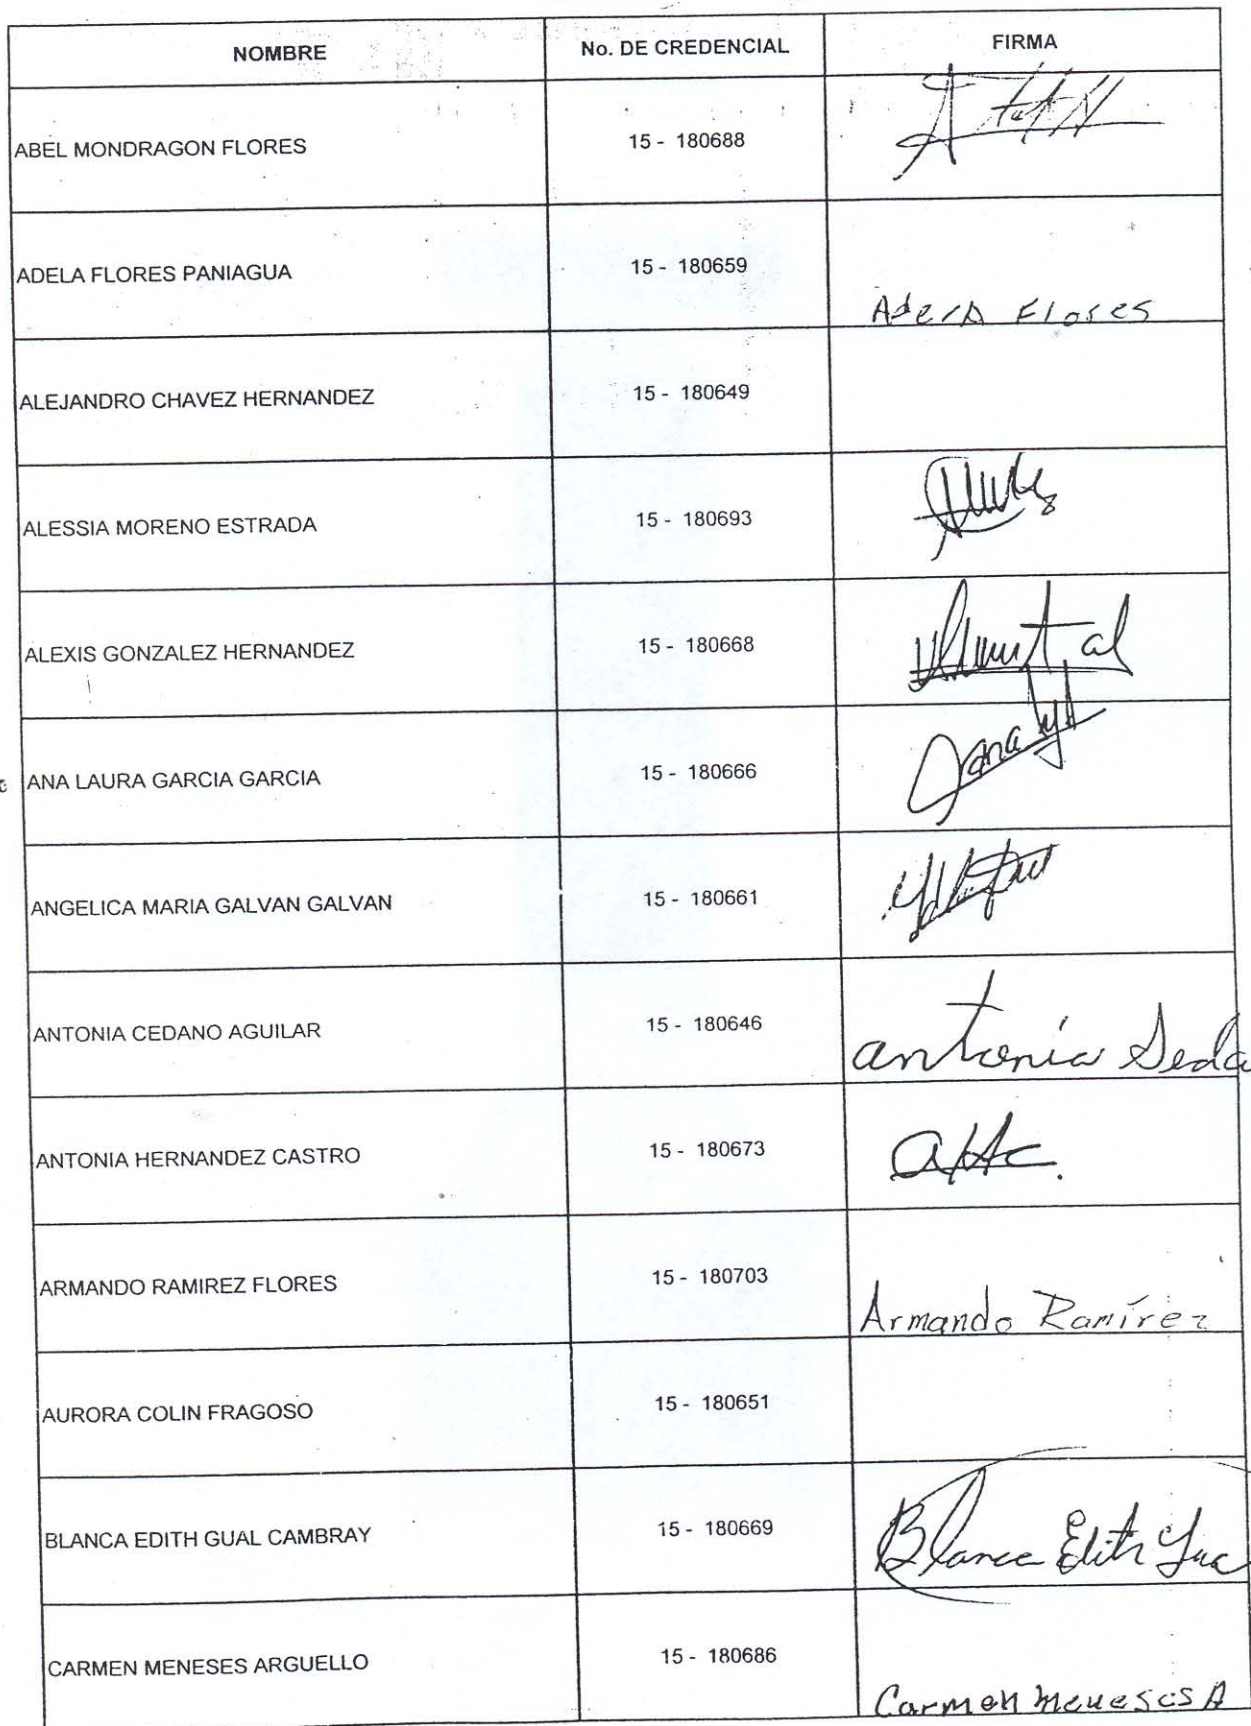 NOMBRE No. DE CREDENCIAL FIRMA
ABEL MONDRAGON FLORES 15 - 180688
ADELA FLORES PANIAGUA 15 - 180659 Adela Flores
ALEJANDRO CHAVEZ HERNANDEZ 15 - 180649
ALESSIA MORENO ESTRADA 15 - 180693
ALEXIS GONZALEZ HERNANDEZ 15 - 180668
ANA LAURA GARCIA GARCIA 15 - 180666
ANGELICA MARIA GALVAN GALVAN 15 - 180661
ANTONIA CEDANO AGUILAR 15 - 180646 antonia Seda
ANTONIA HERNANDEZ CASTRO 15 - 180673 aHc.
ARMANDO RAMIREZ FLORES 15 - 180703 Armando Ramírez
AURORA COLIN FRAGOSO 15 - 180651
BLANCA EDITH GUAL CAMBRAY 15 - 180669 Blanca Edith Gua
CARMEN MENESES ARGUELLO 15 - 180686 Carmen Meneses A